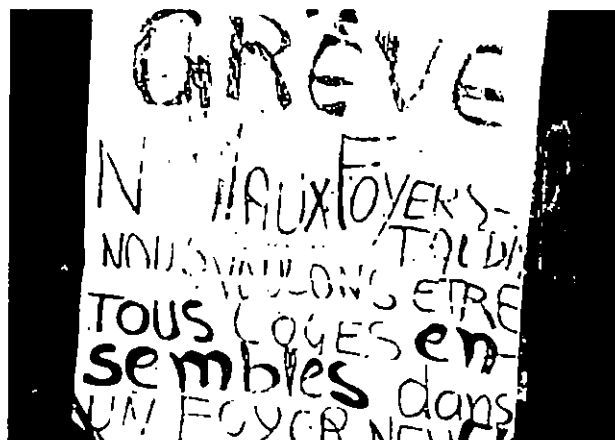 GRÈVE
N AUX FOYERS-
NOUS VOULONS ETRE
TOUS LOGES en-
sembles dans
UN FOYER NEUF